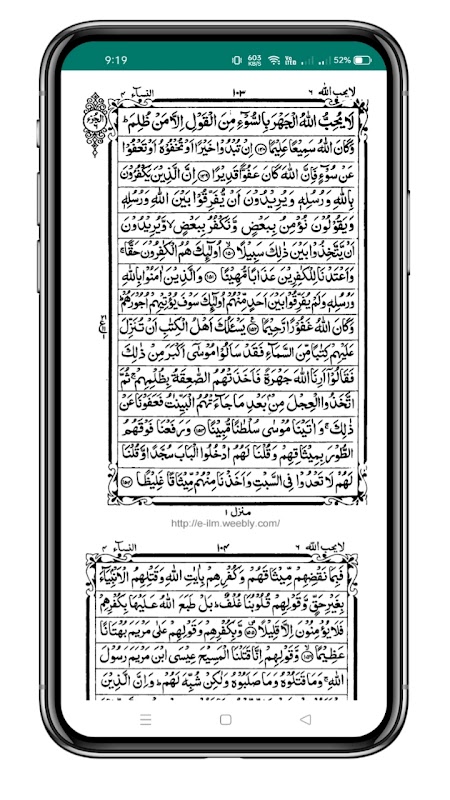 9:19 603 KB/S Vo LTE 52%
لايحب الله ٦ ١٠٣ النسآء ٤
لَا يُحِبُّ اللّٰهُ الْجَهْرَ بِالسُّوْٓءِ مِنَ الْقَوْلِ اِلَّا مَنْ ظُلِمَ ؕ
وَكَانَ اللّٰهُ سَمِيْعًا عَلِيْمًا ﴿۱۴۸﴾ اِنْ تُبْدُوْا خَيْرًا اَوْ تُخْفُوْهُ اَوْ تَعْفُوْا
عَنْ سُوْٓءٍ فَاِنَّ اللّٰهَ كَانَ عَفُوًّا قَدِيْرًا ﴿۱۴۹﴾ اِنَّ الَّذِيْنَ يَكْفُرُوْنَ
بِاللّٰهِ وَرُسُلِهٖ وَيُرِيْدُوْنَ اَنْ يُّفَرِّقُوْا بَيْنَ اللّٰهِ وَرُسُلِهٖ
وَيَقُوْلُوْنَ نُؤْمِنُ بِبَعْضٍ وَّنَكْفُرُ بِبَعْضٍ ۙ وَّيُرِيْدُوْنَ
اَنْ يَّتَّخِذُوْا بَيْنَ ذٰلِكَ سَبِيْلًا ﴿۱۵۰﴾ اُولٰٓئِكَ هُمُ الْكٰفِرُوْنَ حَقًّا ۚ
وَاَعْتَدْنَا لِلْكٰفِرِيْنَ عَذَابًا مُّهِيْنًا ﴿۱۵۱﴾ وَالَّذِيْنَ اٰمَنُوْا بِاللّٰهِ
وَرُسُلِهٖ وَلَمْ يُفَرِّقُوْا بَيْنَ اَحَدٍ مِّنْهُمْ اُولٰٓئِكَ سَوْفَ يُؤْتِيْهِمْ اُجُوْرَهُمْ ؕ
وَكَانَ اللّٰهُ غَفُوْرًا رَّحِيْمًا ﴿۱۵۲﴾ يَسْئَلُكَ اَهْلُ الْكِتٰبِ اَنْ تُنَزِّلَ
عَلَيْهِمْ كِتٰبًا مِّنَ السَّمَآءِ فَقَدْ سَاَلُوْا مُوْسٰۤى اَكْبَرَ مِنْ ذٰلِكَ
فَقَالُوْۤا اَرِنَا اللّٰهَ جَهْرَةً فَاَخَذَتْهُمُ الصّٰعِقَةُ بِظُلْمِهِمْ ۚ ثُمَّ
اتَّخَذُوا الْعِجْلَ مِنْۢ بَعْدِ مَا جَآءَتْهُمُ الْبَيِّنٰتُ فَعَفَوْنَا عَنْ
ذٰلِكَ ۚ وَاٰتَيْنَا مُوْسٰى سُلْطٰنًا مُّبِيْنًا ﴿۱۵۳﴾ وَرَفَعْنَا فَوْقَهُمُ
الطُّوْرَ بِمِيْثَاقِهِمْ وَقُلْنَا لَهُمُ ادْخُلُوا الْبَابَ سُجَّدًا وَّقُلْنَا
لَهُمْ لَا تَعْدُوْا فِى السَّبْتِ وَاَخَذْنَا مِنْهُمْ مِّيْثَاقًا غَلِيْظًا ﴿۱۵۴﴾
منزل ١
http://e-ilm.weebly.com/
لايحب الله ٦ ١٠٤ النسآء ٤
فَبِمَا نَقْضِهِمْ مِّيْثَاقَهُمْ وَكُفْرِهِمْ بِاٰيٰتِ اللّٰهِ وَقَتْلِهِمُ الْاَنْۢبِيَآءَ
بِغَيْرِ حَقٍّ وَّقَوْلِهِمْ قُلُوْبُنَا غُلْفٌ ؕ بَلْ طَبَعَ اللّٰهُ عَلَيْهَا بِكُفْرِهِمْ
فَلَا يُؤْمِنُوْنَ اِلَّا قَلِيْلًا ﴿۱۵۵﴾ وَّبِكُفْرِهِمْ وَقَوْلِهِمْ عَلٰى مَرْيَمَ بُهْتَانًا
عَظِيْمًا ﴿۱۵۶﴾ وَّقَوْلِهِمْ اِنَّا قَتَلْنَا الْمَسِيْحَ عِيْسَى ابْنَ مَرْيَمَ رَسُوْلَ
اللّٰهِ ۚ وَمَا قَتَلُوْهُ وَمَا صَلَبُوْهُ وَلٰكِنْ شُبِّهَ لَهُمْ ؕ وَاِنَّ الَّذِيْنَ